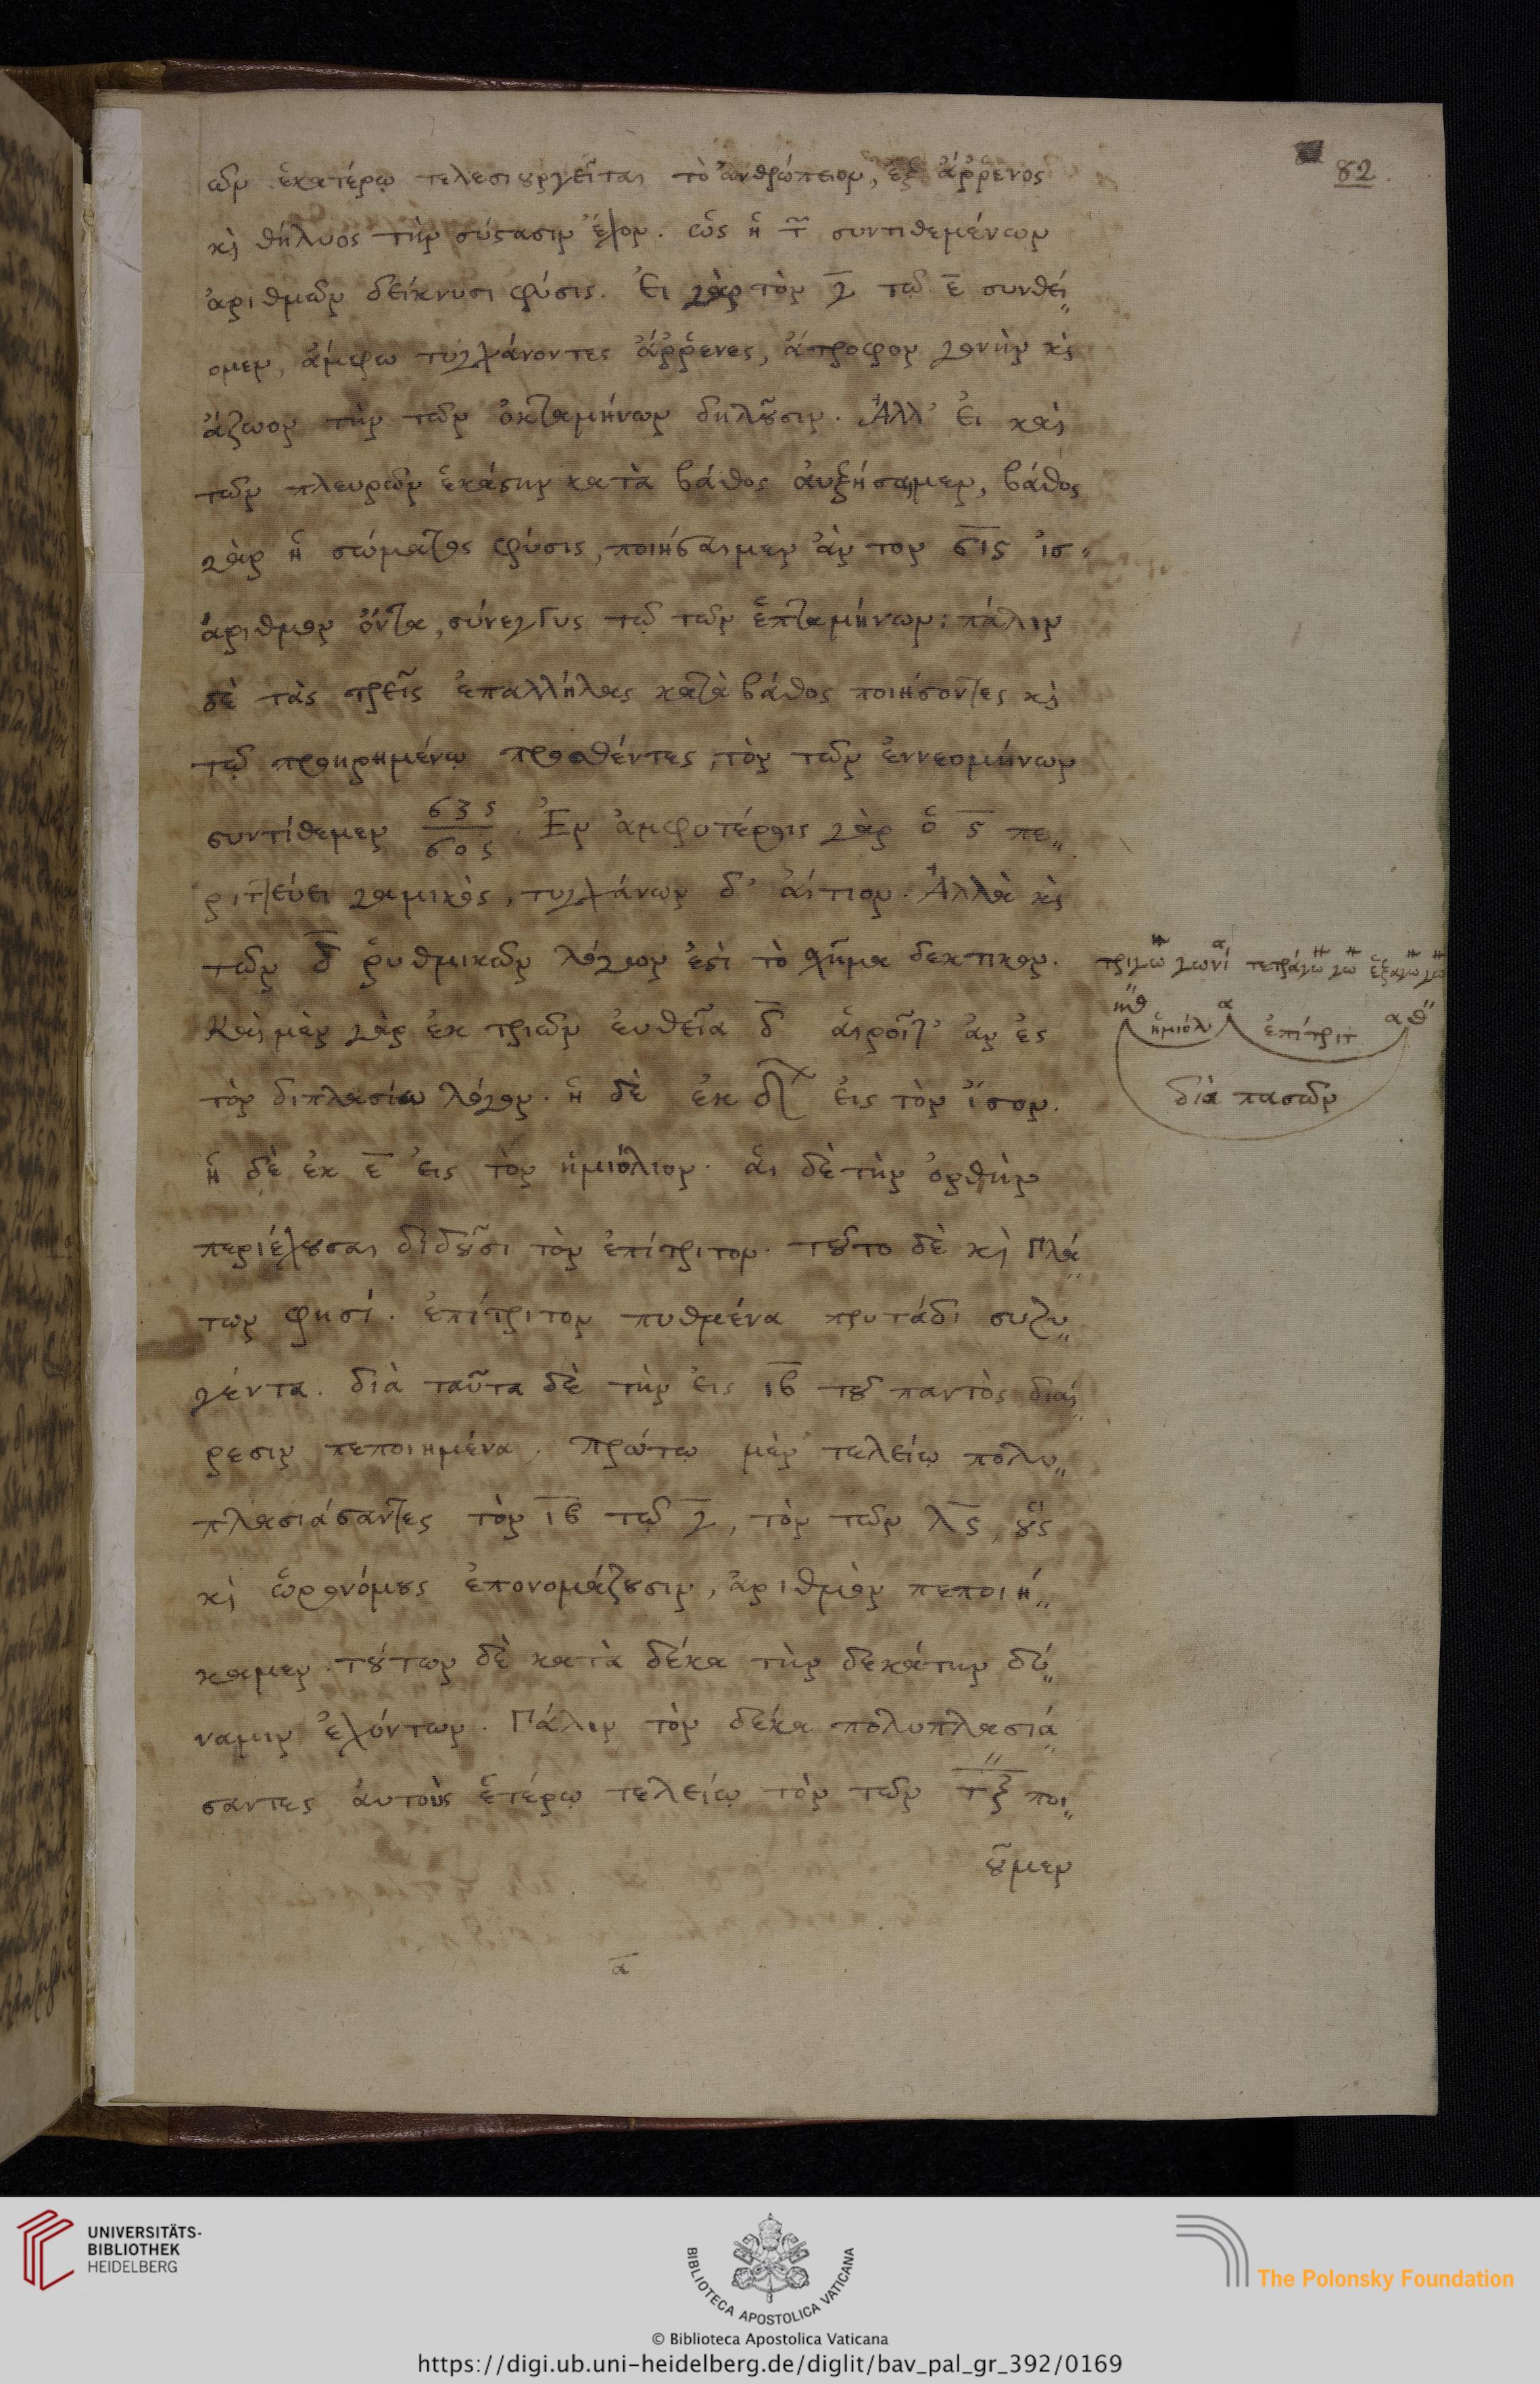 82
ων ἑκατέρῳ τελεσιουργεῖται τὸ ἀνθρώπειον, ἐξ ἄῤῥενος
κὶ θήλυος τὴν σύστασιν ἔχον. ὡς ἡ τ͂ συντιθεμένων
ἀριθμῶν δείκνυσι φύσις. Ἐι γὰρ τὸν γ̅ τῷ ε̅ συνθεί„
ομεν, ἄμφω τυγχάνοντες ἄῤῥενες, ἄτροφον γονὴν κὶ
ἄζωον τὴν τῶν ὀκταμήνων δηλοῦσιν. Ἀλλ' ἐι καὶ
τῶν πλευρῶν ἑκάστην κατὰ βάθος ἀυξήσαιμεν, βάθος
γὰρ ἡ σώματος φύσις, ποιήσαιμεν ἂν τον σ̅ι̅ς̅ ἰσ„
άριθμον ὄντα, σύνεγγυς τῷ τῶν ἑπταμήνων: πάλιν
δὲ τὰς τρεῖς ἐπαλλήλας κατὰ βάθος ποιήσοντες κὶ
τῷ προηρημένῳ προσθέντες, τὸν τῶν ἐννεομήνων
συντίθεμεν σξς/σος. Ἐν ἀμφοτέροις γὰρ ὁ ς̅ πε„
ριττεύει γαμικὸς, τυγχάνων δ' ἄιτιον. Ἀλλὰ κὶ
τῶν δ̅ ῥυθμικῶν λόγων ἐστὶ τὸ σχῆμα δεκτικον.
Καὶ μὲν γὰρ ἐκ τριῶν ἐυθεῖα δ̅ ἁιροῖτ' ἂν ἐς
τὸν διπλασίω λόγον. ἡ δὲ ἐκ δ ἐις τὸν ἴσον.
ἡ δὲ ἐκ ε̅ ἐις τὸν ἡμιόλιον. ἁι δὲ τὴν ὀρθὴν
περιέχουσαι διδοῦσι τὸν ἐπίτριτον. τοῦτο δὲ κὶ Πλά„
των φησί. ἐπίτριτον πυθμένα πρυτάδι συζυ„
γέντα. διὰ ταῦτα δὲ τὴν ἐις ι̅β̅ τοῦ παντὸς διαί„
ρεσιν πεποιημένα. Πρώτῳ μὲν τελείῳ πολυ„
πλασιάσαντες τὸν ι̅β̅ τῷ γ̅, τὸν τῶν λ̅ς̅, οὓς
κὶ ὡρονόμους ἐπονομάζουσιν, ἀριθμὸν πεποιή„
καμεν. τούτων δὲ κατὰ δέκα τὴν δεκάτην δύ„
ναμιν ἐχόντων. Πάλιν τὸν δέκα πολυπλασιά„
σαντες ἀυτοὺς ἑτέρῳ τελείῳ τὸν τῶν τ̅ξ̅ ποι„
οῦμεν
α̅
ἡμιόλ ἐπίτριτ
διὰ πασῶν
UNIVERSITÄTS-
BIBLIOTHEK
HEIDELBERG
BIBLIOTECA APOSTOLICA VATICANA
The Polonsky Foundation
© Biblioteca Apostolica Vaticana
https://digi.ub.uni-heidelberg.de/diglit/bav_pal_gr_392/0169